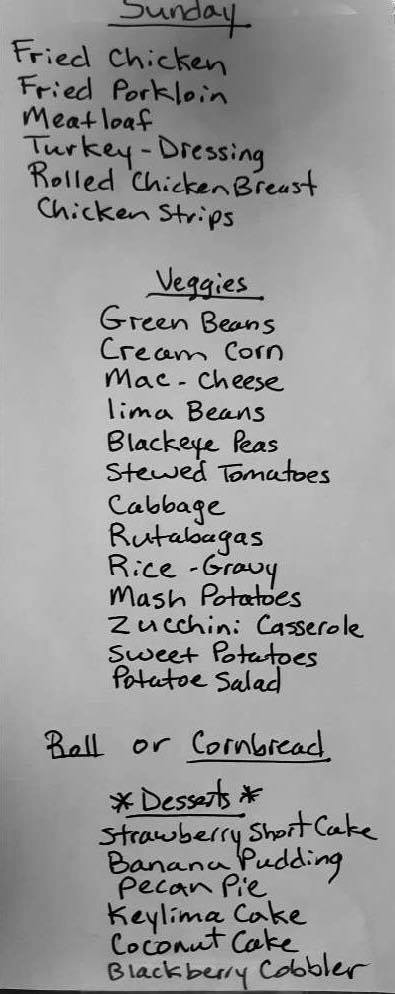 Sunday
Fried Chicken
Fried Porkloin
Meatloaf
Turkey-Dressing
Rolled Chicken Breast
Chicken Strips
Veggies
Green Beans
Cream Corn
Mac-Cheese
lima Beans
Blackeye Peas
Stewed Tomatoes
Cabbage
Rutabagas
Rice-Gravy
Mash Potatoes
Zucchini Casserole
Sweet Potatoes
Potatoe Salad
Roll or Cornbread
*Desserts*
Strawberry Short Cake
Banana Pudding
Pecan Pie
Keylima Cake
Coconut Cake
Blackberry Cobbler